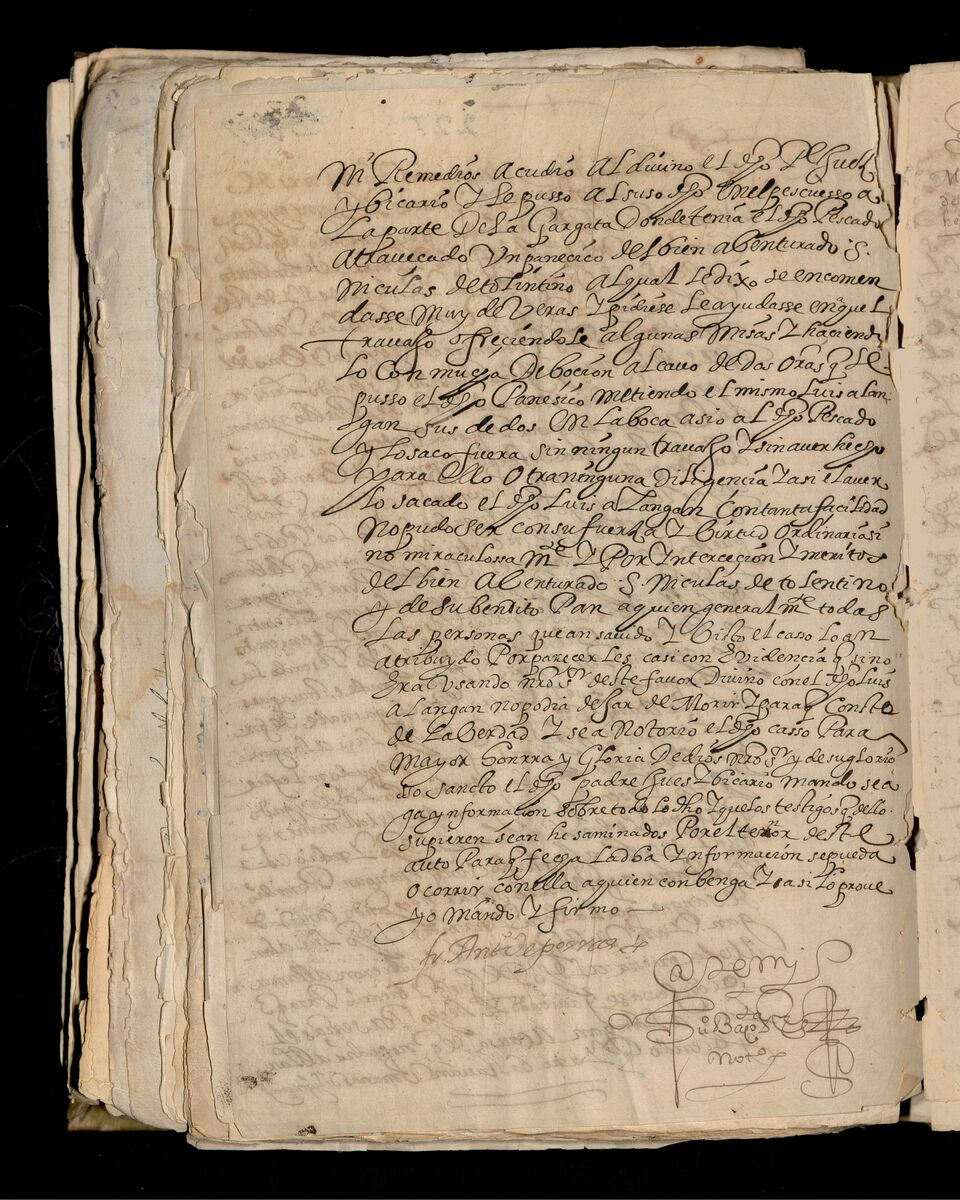 Mᵗ Remedios acudio Al divino el dho Pe Juez
y bicario Y le pusso al suso dho En el pescuesso a
La parte De La Gargata Donde tenia el dho Pescado
atravecado Un panecico del bien abenturado S.
Niculas de tolintino al qual le dixo se encomen
dasse Muy de veras Y pidiese Le ayudasse en quel
travajo ofreçiendole algunas Misas Y haciendo
Lo Con mucha Debocion al cavo de dos oras q Le
pusso el dho Panesico metiendo el mismo Luis alan
gan sus dedos En la boca asio al dho Pescado
Y lo saco fuera sin ningun travajo Y sin aver hecho
para Ello Otra ninguna Diligencia Y asi el aver
lo sacado el dho Luis alangan Con tanta facilidad
No pudo ser con su fuerza Y birtud Ordinaria si
no miraculossa Mᵗᵉ Y Por Intercecion Y meritos
del bien Abenturado S. Niculas de tolentino
Y de su bendito Pan a quien general mᵗᵉ todas
Las personas que an savido Y bisto el casso lo an
atribuydo Por parecerles casi con Evidencia q si no
Era Usando nro Sʳ deste favor Divino con el dho Luis
alangan no podia dejar de Morir Y para q Conste
de La berdad Y sea Notorio el dho casso Para
Mayor honrra y Gloria De dios nro Sʳ y de su glorio
so sancto el dho padre Juez Y bicario mando se a
ga ynformacion sobre todo lo dho Y que los testigos q dello
supieren sean hesaminados Por el tenor deste
auto Para q fecha La dha Ynformacion se pueda
Ocorrir con ella a quien conbenga Y asi lo prove
yo Mando Y firmo
fr. Antᵒ de porras
Ante my
Ju Bapᵗᵃ
Notᵒ